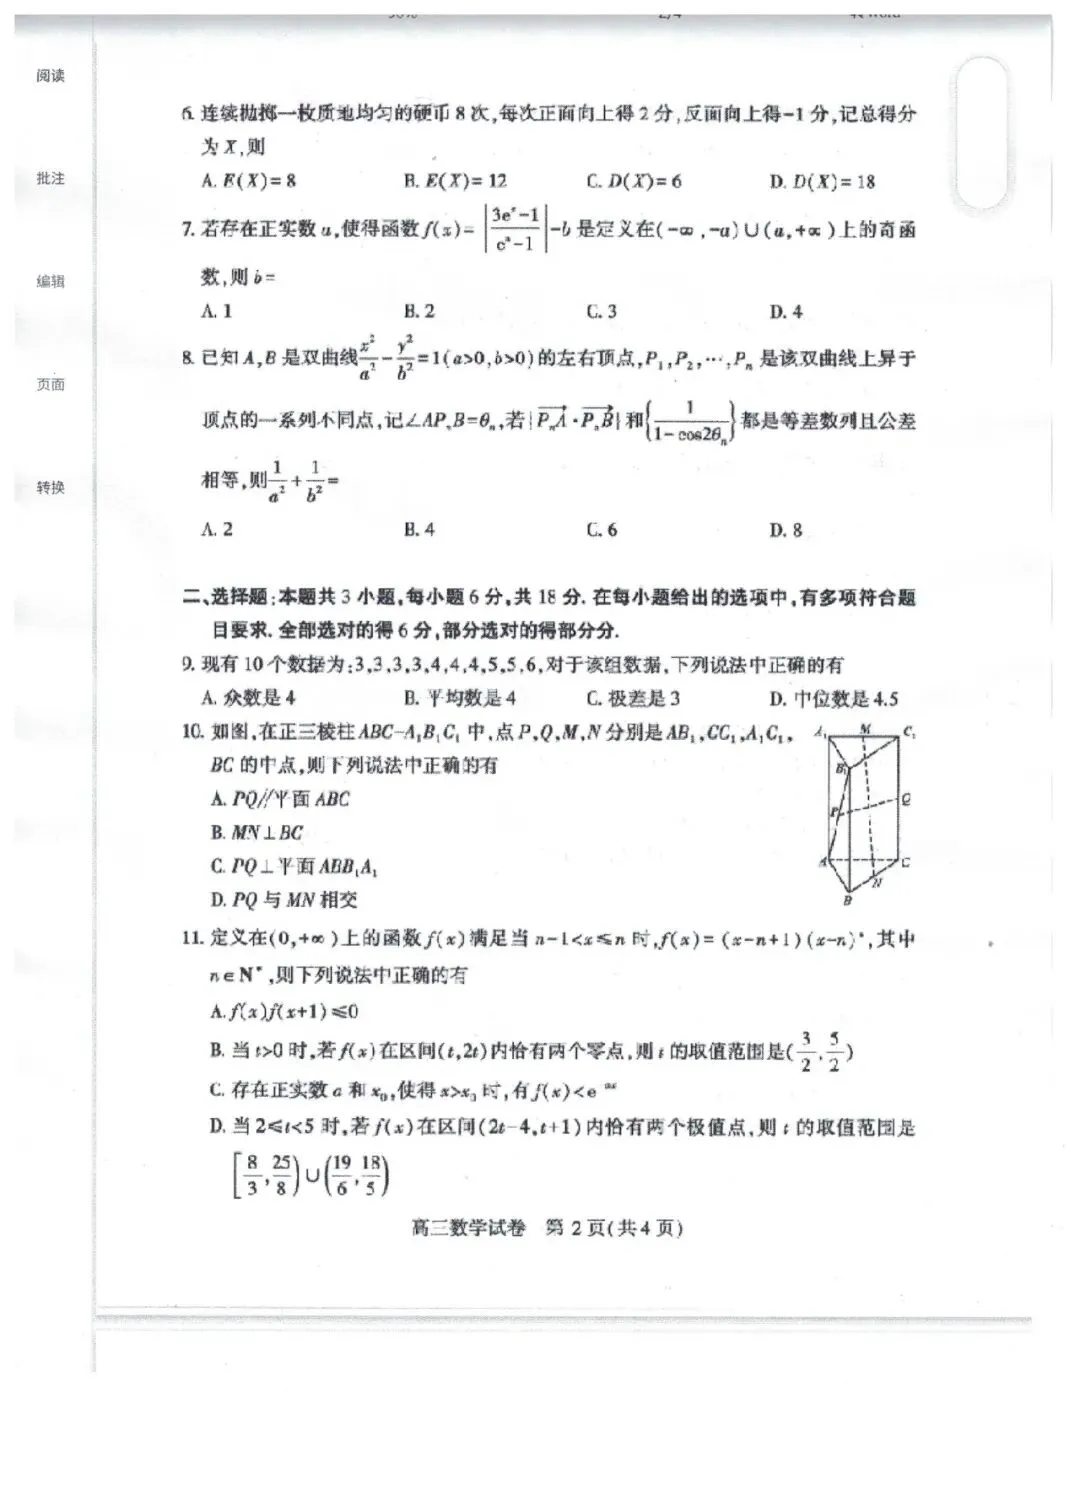 阅读
批注
编辑
页面
转换
6. 连续抛掷一枚质地均匀的硬币8次,每次正面向上得2分,反面向上得-1分,记总得分
为X,则
A. E(X)=8 B. E(X)=12 C. D(X)=6 D. D(X)=18
7. 若存在正实数a,使得函数f(x)=|(3eˣ-1)/(eˣ-1)|-b是定义在(-∞,-a)∪(a,+∞)上的奇函
数,则b=
A. 1 B. 2 C. 3 D. 4
8. 已知A,B是双曲线x²/a²-y²/b²=1(a>0,b>0)的左右顶点,P₁,P₂,⋯,Pₙ是该双曲线上异于
顶点的一系列不同点,记∠APₙB=θₙ,若|PₙA·PₙB|和{1/(1-cos2θₙ)}都是等差数列且公差
相等,则1/a²+1/b²=
A. 2 B. 4 C. 6 D. 8
二、选择题:本题共3小题,每小题6分,共18分. 在每小题给出的选项中,有多项符合题
目要求. 全部选对的得6分,部分选对的得部分分.
9. 现有10个数据为:3,3,3,3,4,4,4,5,5,6,对于该组数据,下列说法中正确的有
A. 众数是4 B. 平均数是4 C. 极差是3 D. 中位数是4.5
10. 如图,在正三棱柱ABC-A₁B₁C₁中,点P,Q,M,N分别是AB₁,CC₁,A₁C₁,
BC的中点,则下列说法中正确的有
A. PQ∥平面ABC
B. MN⊥BC
C. PQ⊥平面ABB₁A₁
D. PQ与MN相交
A₁ M C₁
B₁
Q
P
A C
N
B
11. 定义在(0,+∞)上的函数f(x)满足当n-1<x≤n时,f(x)=(x-n+1)(x-n)ⁿ,其中
n∈N*,则下列说法中正确的有
A. f(x)f(x+1)≤0
B. 当t>0时,若f(x)在区间(t,2t)内恰有两个零点,则t的取值范围是(3/2,5/2)
C. 存在正实数a和x₀,使得x>x₀时,有f(x)<e⁻ᵃˣ
D. 当2≤t<5时,若f(x)在区间(2t-4,t+1)内恰有两个极值点,则t的取值范围是
[8/3,25/8)∪(19/6,18/5)
高三数学试卷 第2页(共4页)